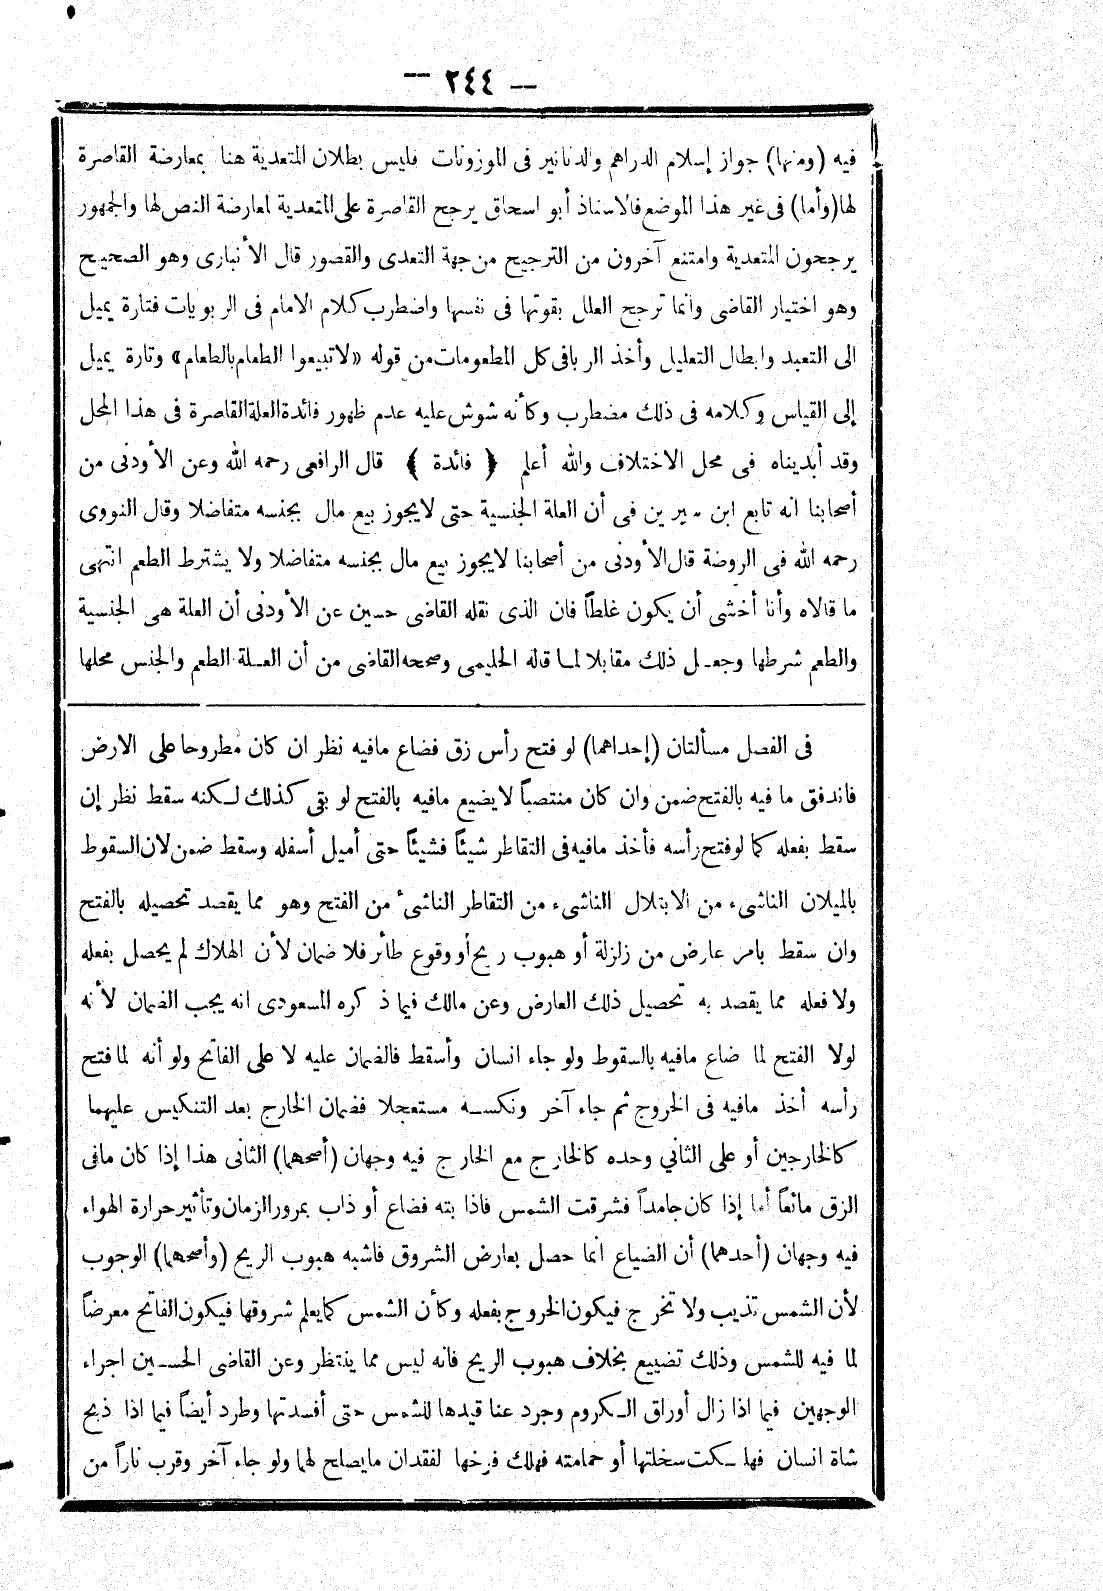 — ٢٤٤ —
فيه (ومنها) جواز إسلام الدراهم والدنانير فى الموزونات فليس بطلان المتعدية هنا بمعارضة القاصرة
لها (وأما) فى غير هذا الموضع فالاستاذ أبو اسحاق يرجح القاصرة على المتعدية لمعارضة النص لها والجمهور
يرجحون المتعدية وامتنع آخرون من الترجيح من جهة التعدى والقصور قال الأنبارى وهو الصحيح
وهو اختيار القاضى وانما ترجح العلل بقوتها فى نفسها واضطرب كلام الامام فى الربويات فتارة يميل
الى التعبد وابطال التعليل وأخذ الربا فى كل المطعومات من قوله «لا تبيعوا الطعام بالطعام» وتارة يميل
إلى القياس وكلامه فى ذلك مضطرب وكأنه شوش عليه عدم ظهور فائدة العلة القاصرة فى هذا المحل
وقد أبديناه فى محل الاختلاف والله أعلم ﴿ فائدة ﴾ قال الرافعى رحمه الله وعن الأودنى من
أصحابنا انه تابع ابن سيرين فى أن العلة الجنسية حتى لا يجوز بيع مال بجنسه متفاضلا وقال النووى
رحمه الله فى الروضة قال الأودنى من أصحابنا لا يجوز بيع مال بجنسه متفاضلا ولا يشترط الطعم انتهى
ما قالاه وأنا أخشى أن يكون غلطاً فان الذى نقله القاضى حسين عن الأودنى أن العلة هى الجنسية
والطعم شرطها وجعل ذلك مقابلا لما قاله الحليمى وصححه القاضى من أن العلة الطعم والجنس محلها
فى الفصل مسألتان (إحداهما) لو فتح رأس زق فضاع مافيه نظر ان كان مطروحا على الارض
فاندفق ما فيه بالفتح ضمن وان كان منتصباً لا يضيع مافيه بالفتح لو بقى كذلك لكنه سقط نظر إن
سقط بفعله كما لو فتح رأسه فأخذ مافيه فى التقاطر شيئاً فشيئاً حتى أميل أسفله وسقط ضمن لان السقوط
بالميلان الناشىء من الابتلال الناشىء من التقاطر الناشىء من الفتح وهو مما يقصد تحصيله بالفتح
وان سقط بامر عارض من زلزلة أو هبوب ريح أو وقوع طائر فلا ضمان لأن الهلاك لم يحصل بفعله
ولا فعله مما يقصد به تحصيل ذلك العارض وعن مالك فيما ذكره المسعودى انه يجب الضمان لأنه
لولا الفتح لما ضاع مافيه بالسقوط ولو جاء انسان وأسقط فالضمان عليه لا على الفاتح ولو أنه لما فتح
رأسه أخذ مافيه فى الخروج ثم جاء آخر ونكسه مستعجلا فضمان الخارج بعد التنكيس عليهما
كالخارجين أو على الثاني وحده كالخارج مع الخارج فيه وجهان (أصحهما) الثانى هذا إذا كان مافى
الزق مائعاً أما إذا كان جامداً فشرقت الشمس فاذا بته فضاع أو ذاب بمرور الزمان وتأثير حرارة الهواء
فيه وجهان (أحدهما) أن الضياع انما حصل بعارض الشروق فاشبه هبوب الريح (وأصحهما) الوجوب
لأن الشمس تذيب ولا تخرج فيكون الخروج بفعله وكأن الشمس كما يعلم شروقها فيكون الفاتح معرضاً
لما فيه للشمس وذلك تضييع بخلاف هبوب الريح فانه ليس مما ينتظر وعن القاضى الحسين اجراء
الوجهين فيما اذا زال أوراق الكروم وجرد عنا قيدها للشمس حتى أفسدتها وطرد أيضاً فيما اذا ذبح
شاة انسان فهلكت سخلتها أو حمامته فهلك فرخها لفقدان ما يصلح لهما ولو جاء آخر وقرب ناراً من